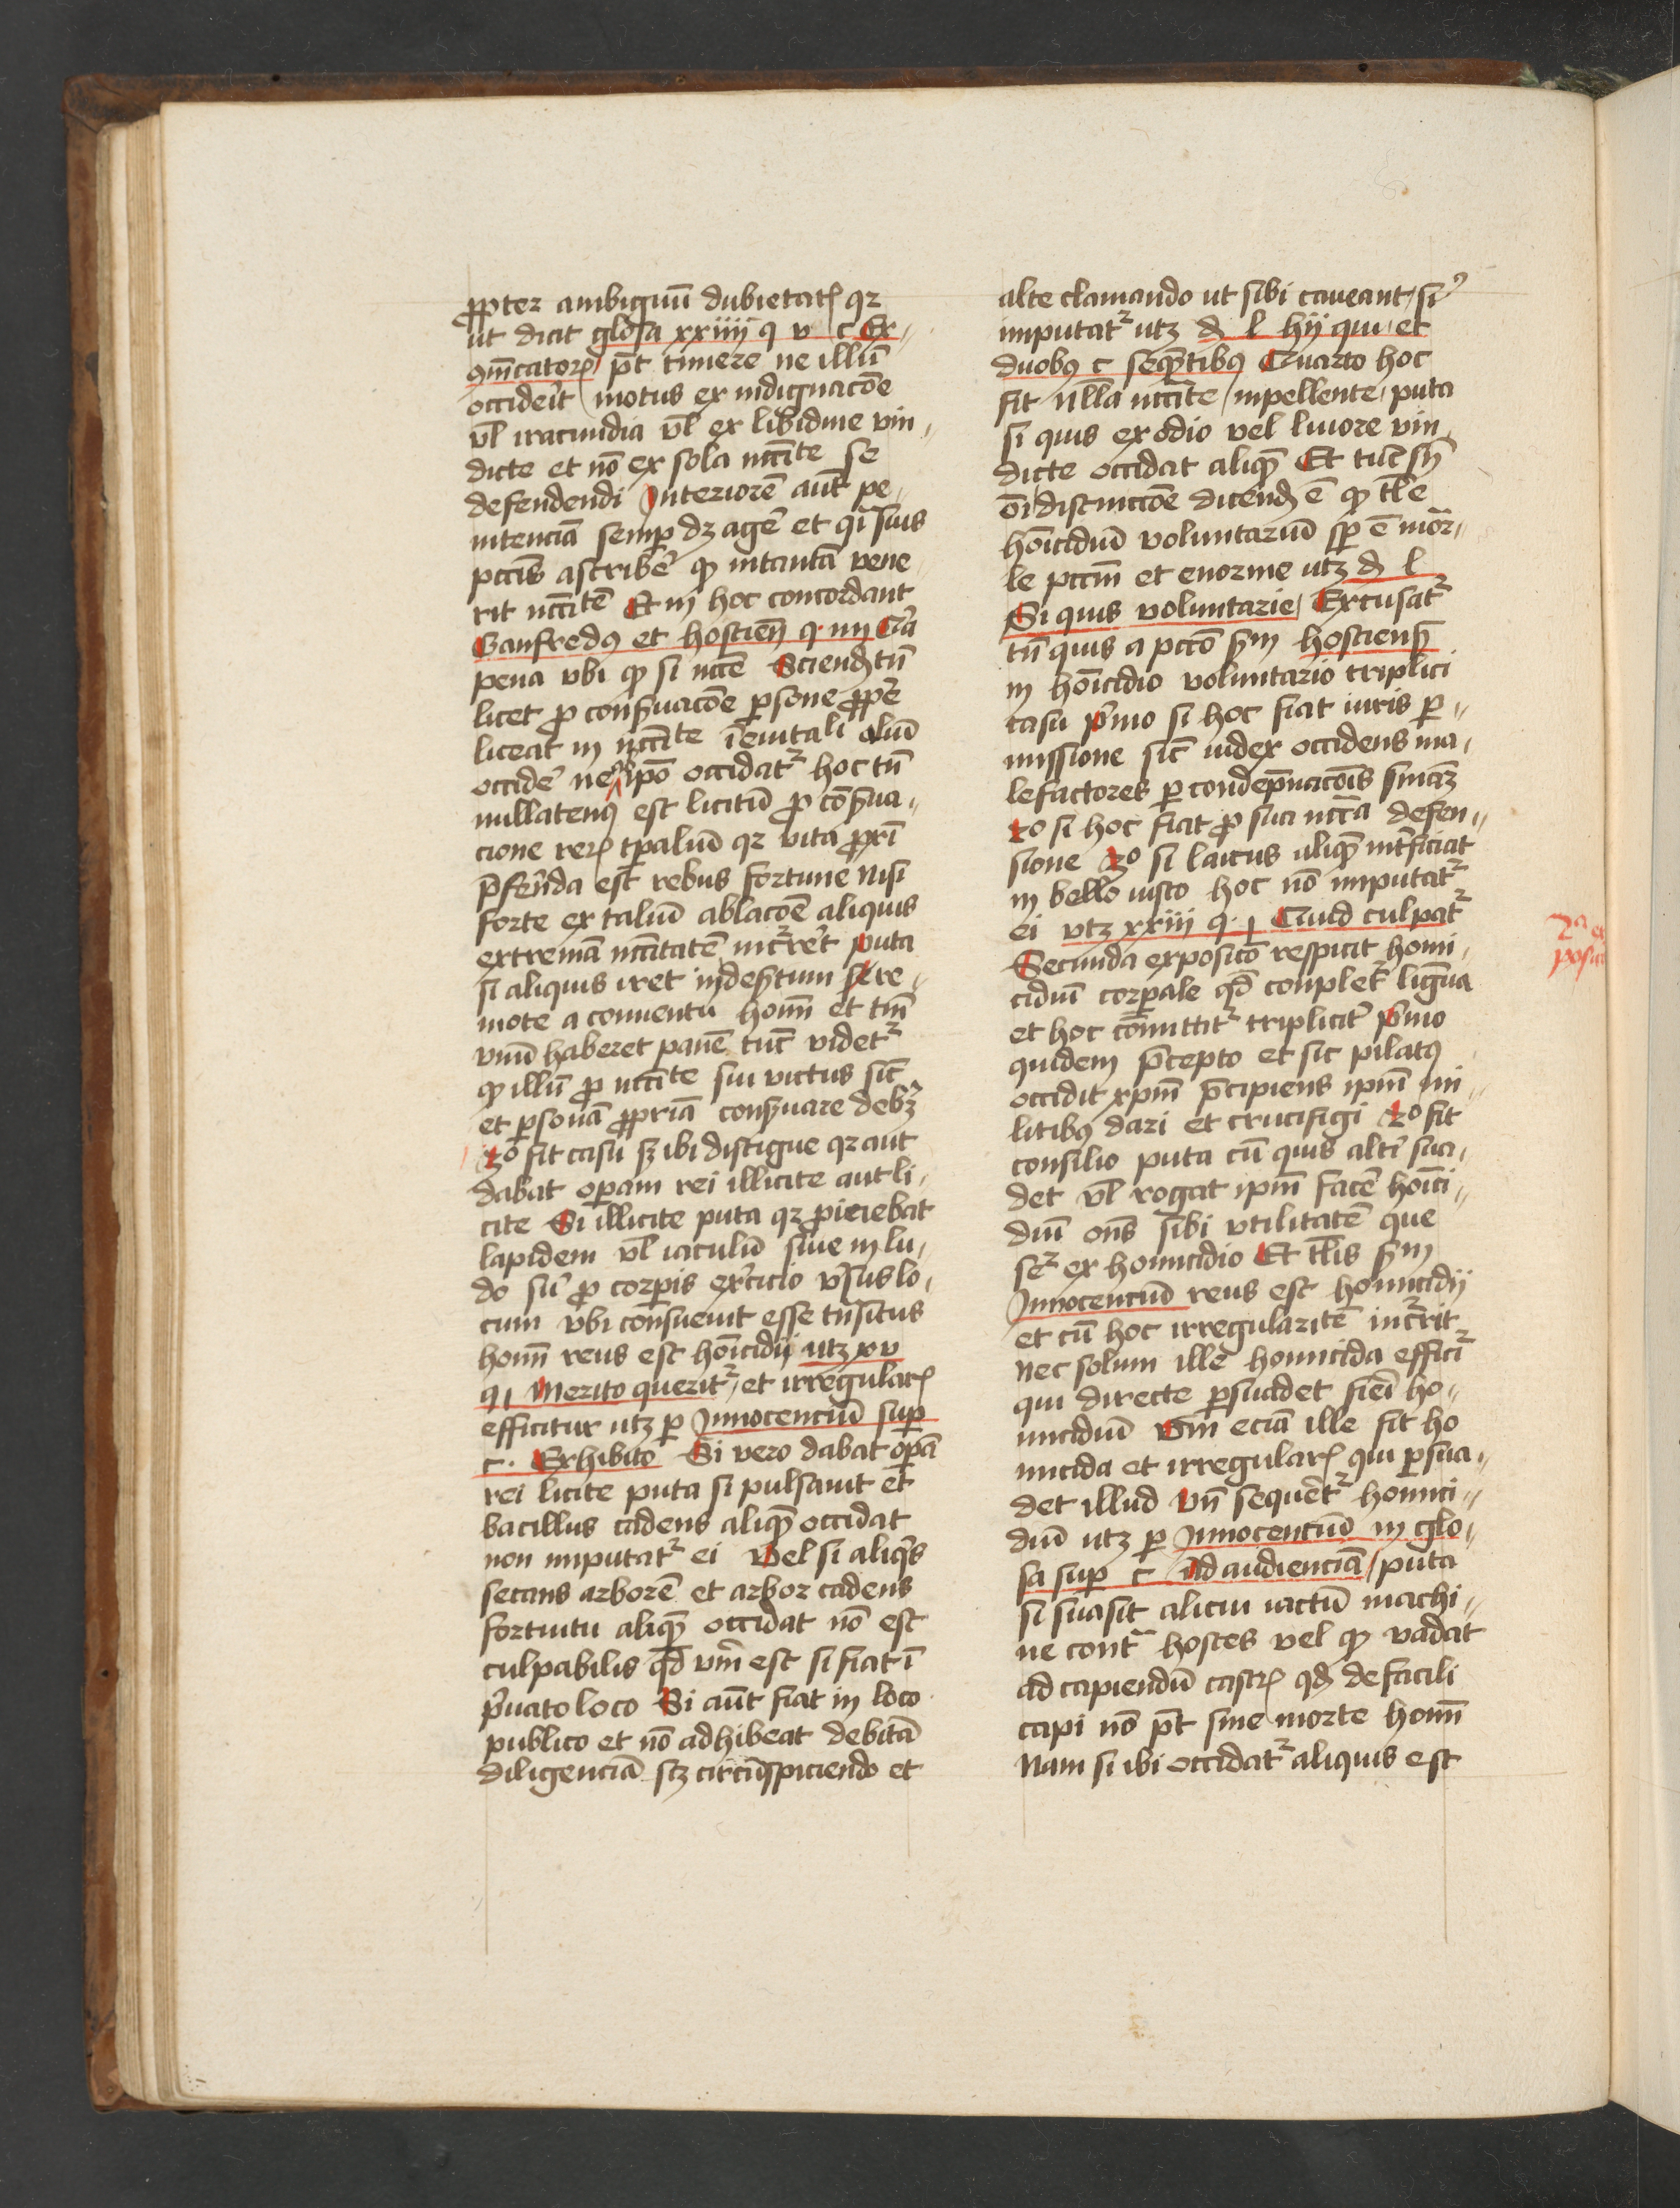 ꝓpter ambiguū dubietatꝭ qꝛ
ut dicit glosa xxiiii q v c Ex
ꝯīcatoꝝ pt̄ timere ne illū
occideĩt motus ex indignacōe
vl̄ iracundia vl̄ ex libidine vin
dicte et nō ex sola nccīte se
defendendi Interiorē aut̄ pe
nitenciā semꝑ dꝫ agē et qͥ suis
pccīs ascribē ꝙ intantā vene
rit nccītē Et in hoc concordant
Ganfredꝰ et hostieñ q. iiii
pena vbi ꝙ si nccē Sciendꝭ tn̄
licet ꝓ conẜuacōe ꝑsone ꝓpꝛē
liceat in nccīte īeuitali aliū
occidē ne ipō occidatᷣ hoc tn̄
nullatenꝰ est licitū ꝓ cōẜua
cione reꝝ tꝑaliū qꝛ vita ꝓxī
p̄ferēda est rebus fortune Nisi
forte ex taliū ablacōe aliquis
extremā nccītatē incᷣreret puta
si aliquis iret in deẜtum re
mote a conuentu homī et tm̄
vnū haberet panē tūc videtᷣ
ꝙ illū ꝓ nccīte sui victus sic̄
et ꝑsonā ꝓpriā conẜuare debꝫ
3o fit casu sꝫ ibi distigue qꝛ aut
dabat operam rei illicite aut li
cite Si illicite puta qꝛ ꝓiciebat
lapidem vl̄ iaculū siue in lu
do siͧ ꝓ corpis exͬcicio vẜus lo
cum vbi consueuit esse tn̄situs
homī reus est hoīcidij utꝫ xv
q i Merito queritᷣ et irregularꝭ
efficitur utꝫ ꝑ Innocenciū suꝑ
c. Exhibito Si vero dabat opā
rei licite puta si pulsauit et
bacillus cadens aliquē occidat
non imputatᷣ ei Vel si aliqͥs
secans arborē et arbor cadens
fortuitu aliquē occidat nō est
culpabilis qd̄ vm̄ est si fiat ī
pͥuato loco Si aūt fiat in loco
publico et nō adhibeat debitā
diligenciā sꝫ circūspiciendo et
alte clamando ut sibi caueant siͨ
imputatᷣ utꝫ d l hij qui et
duobꝰ c seqn̄tibꝰ Quarto hoc
fit nlla nccīte inpellente puta
si quis ex odio vel liuore vin
dicte occidat aliquē Et tūc sn̄
oī distinccōe dicendꝭ ē ꝙ tl̄e
hoīcidiū voluntariū sꝑ ē mor
le pccm̄ et enorme utꝫ d l
Si quis voluntarie Excusatᷣ
tn̄ quis a pccō ẜm hostienẜ
in hoīcidio voluntario triplici
casu pͥmo si hoc fiat iuris ꝑ
missione sic̄ iudex occidens ma
lefactores ꝑ condēpnacōis sn̄iaꝫ
2o si hoc fiat ꝓ sui nccīa defen
sione 3o si laicus aliquē int̄ficiat
in bello iusto hoc nō imputatᷣ
ei vtꝫ xxiii q. i Quid culpatᷣ
Secunda exposicō respicit homi
cidiū corꝑale qd̄ conpletᷣ ligua
et hoc cōmittitᷣ triplicitͬ pͥmo
quidem p̄cepto et sic pilatꝰ
occidit xp̄m p̄cipiens ip̄m mi
litibꝰ dari et crucifigi 2o fit
consilio puta cū quis altͥ sua
det vl̄ rogat ip̄m facē hoīci
diū oñs sibi vtilitatē que
seᷣ ex homicidio Et tl̄is ẜm
Innocenciū reus est homicidij
et cū hoc irregularitē incᷣrit
nec solum ille homicida efficiᷣ
qui directe ꝑsuadet fieri ho
micidiū Vm̄ eciā ille fit ho
micida et irregularꝭ qui ꝑsua
det illud vn̄ sequētᷣ homici
diū utꝫ ꝑ Innocenciū in glo
sa suꝑ c Ad audienciā puta
si suasit alicui iactū machi
ne contͣ hostes vel ꝙ vadat
ad capiendū castrꝭ qd̄ de facili
capi nō pt̄ sine morte homī
Nam si ibi occidatᷣ aliquis est
2ᵃ ex
posici